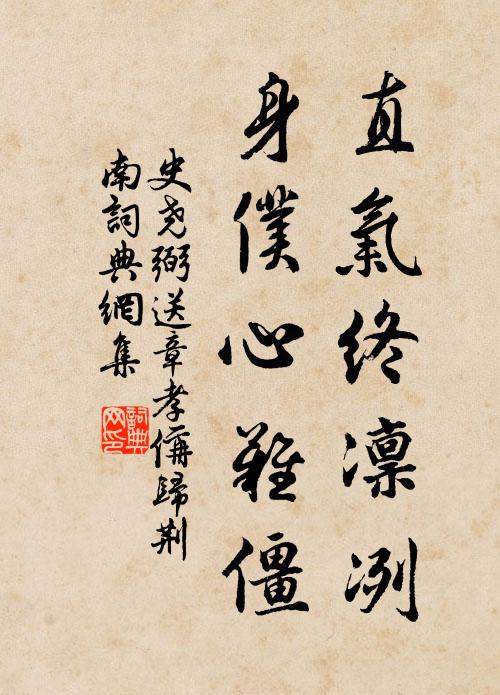 直氣終凜冽
身僕心難僵
史堯弼送章孝備歸荊
南詞典網集
詞典
网印